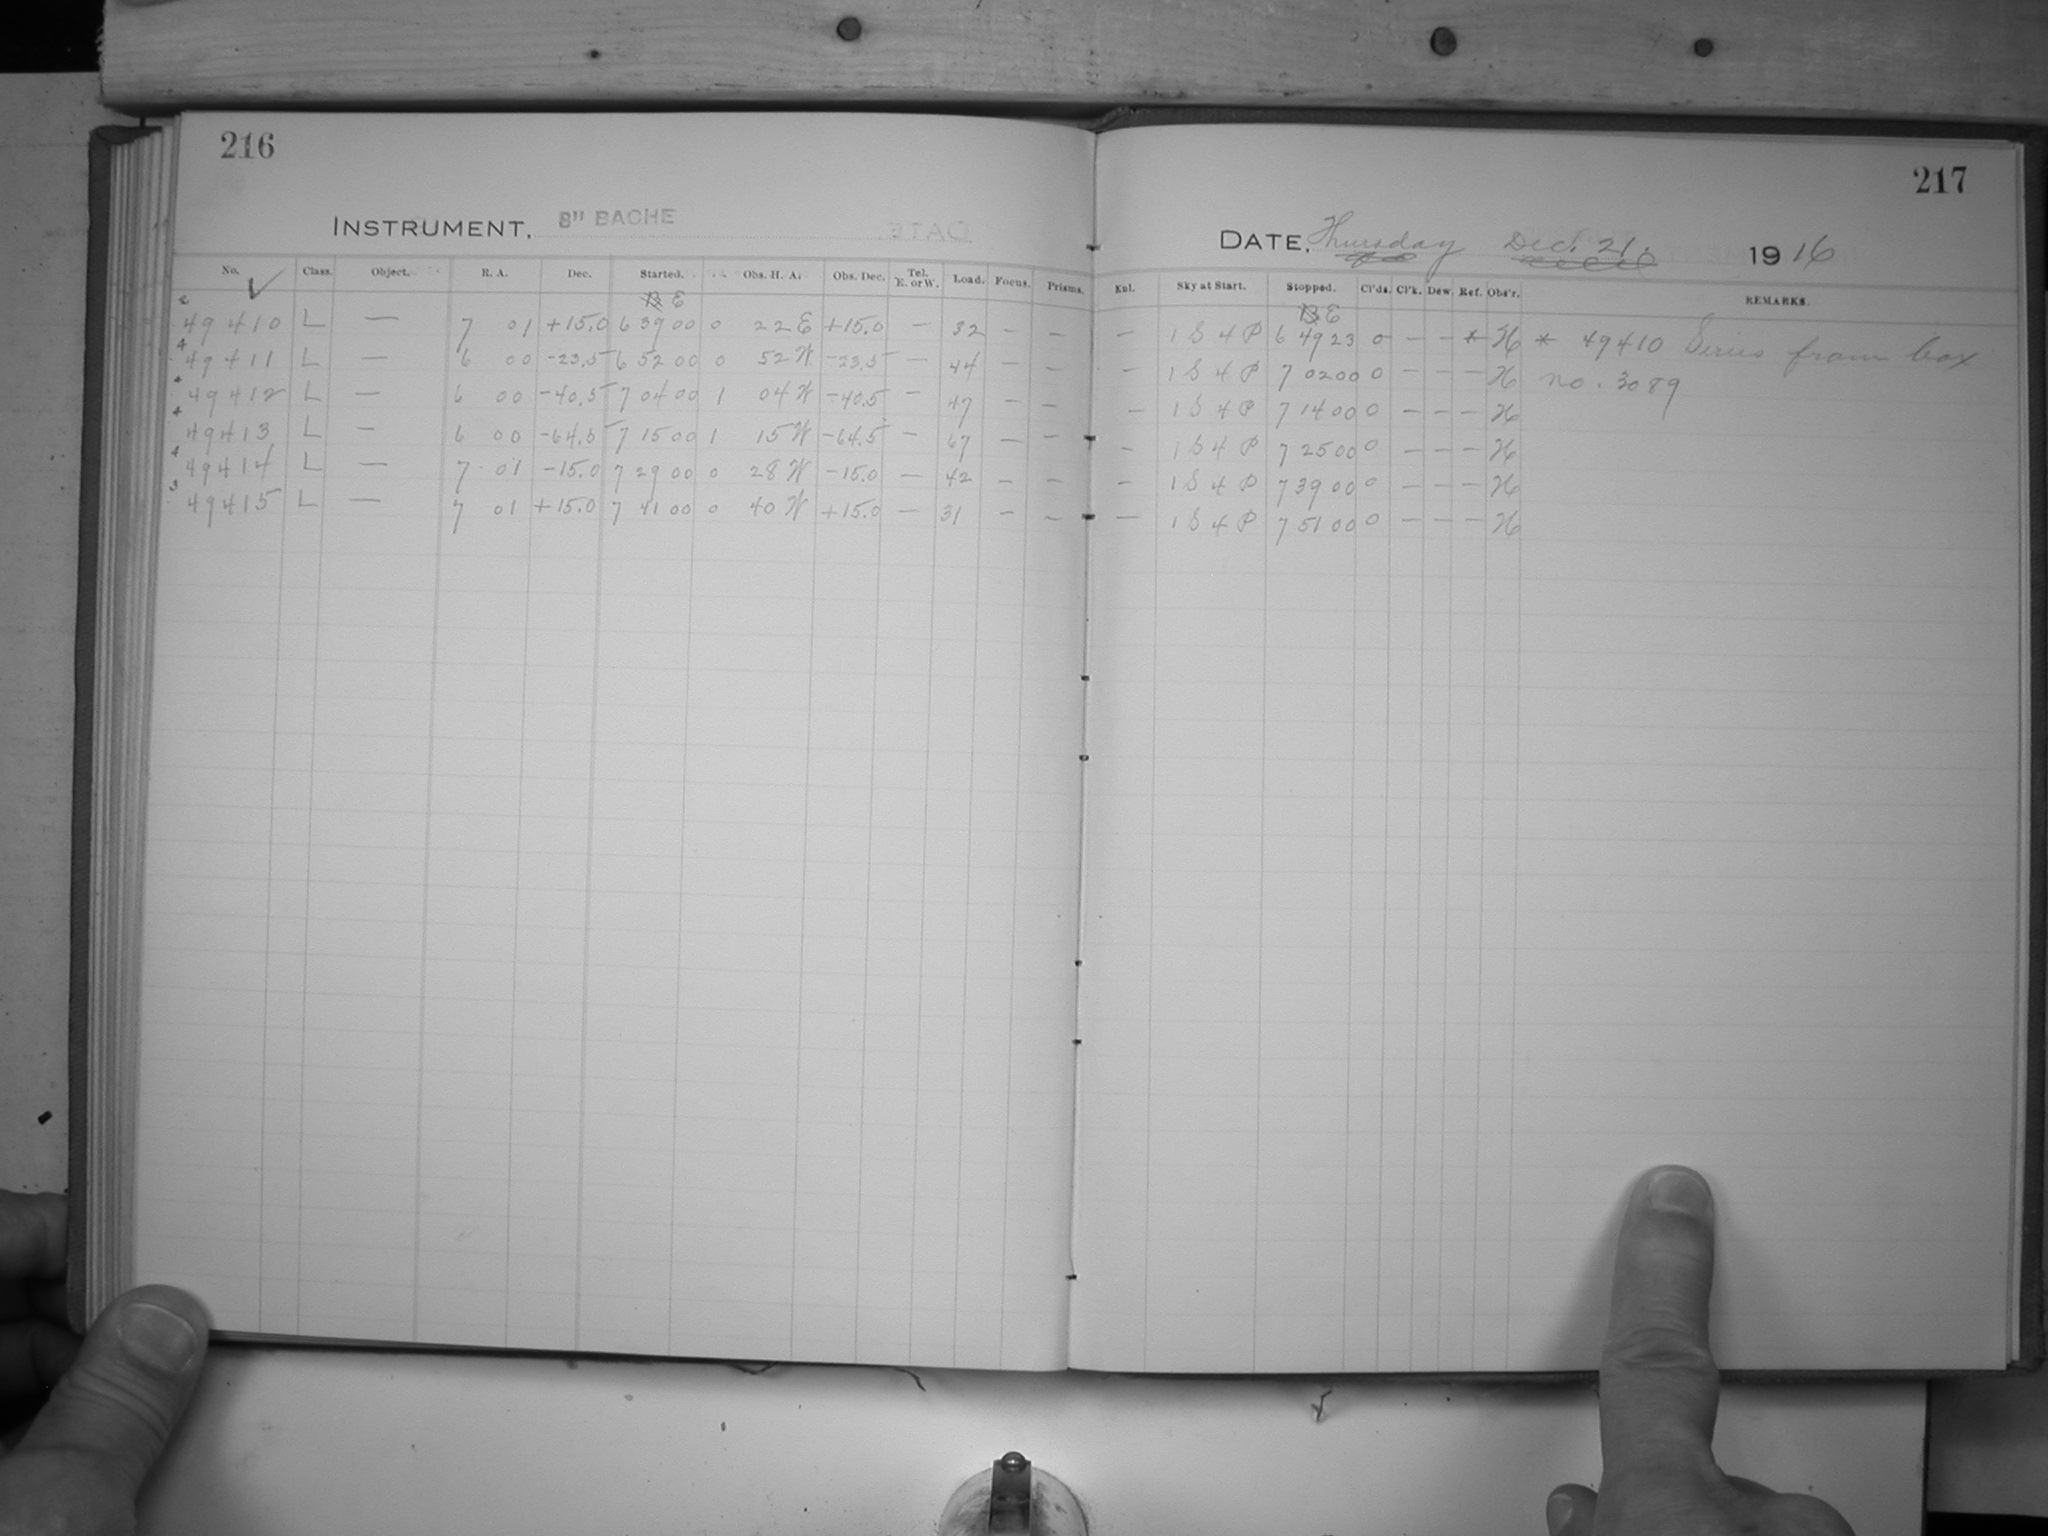 216
INSTRUMENT. 8" BACHE
No. Class. Object. R. A. Dec. Started. Obs. H. A. Obs. Dec. Tel. E. or W. Load. Focus. Prisms.
E
2 49410 L — 7 01 +15.0 6 39 00 0 22 E +15.0 — 32 — —
4 49411 L — 6 00 -23.5 6 52 00 0 52 W -23.5 — 44 — —
4 49412 L — 6 00 -40.5 7 04 00 1 04 W -40.5 — 47 — —
4 49413 L — 6 00 -64.5 7 15 00 1 15 W -64.5 — 67 — —
4 49414 L — 7 01 -15.0 7 29 00 0 28 W -15.0 — 42 — —
3 49415 L — 7 01 +15.0 7 41 00 0 40 W +15.0 — 31 — —
217
DATE. Thursday Dec. 21. 1916
Exl. Sky at Start. Stopped. Cl'ds. Cl'k. Dew. Ref. Obs'r. REMARKS.
E
— 1 S 4 P 6 49 23 0 — — * H * 49410 Series from box
— 1 S 4 P 7 02 00 0 — — — H no. 3089
— 1 S 4 P 7 14 00 0 — — — H
— 1 S 4 P 7 25 00 0 — — — H
— 1 S 4 P 7 39 00 0 — — — H
— 1 S 4 P 7 51 00 0 — — — H